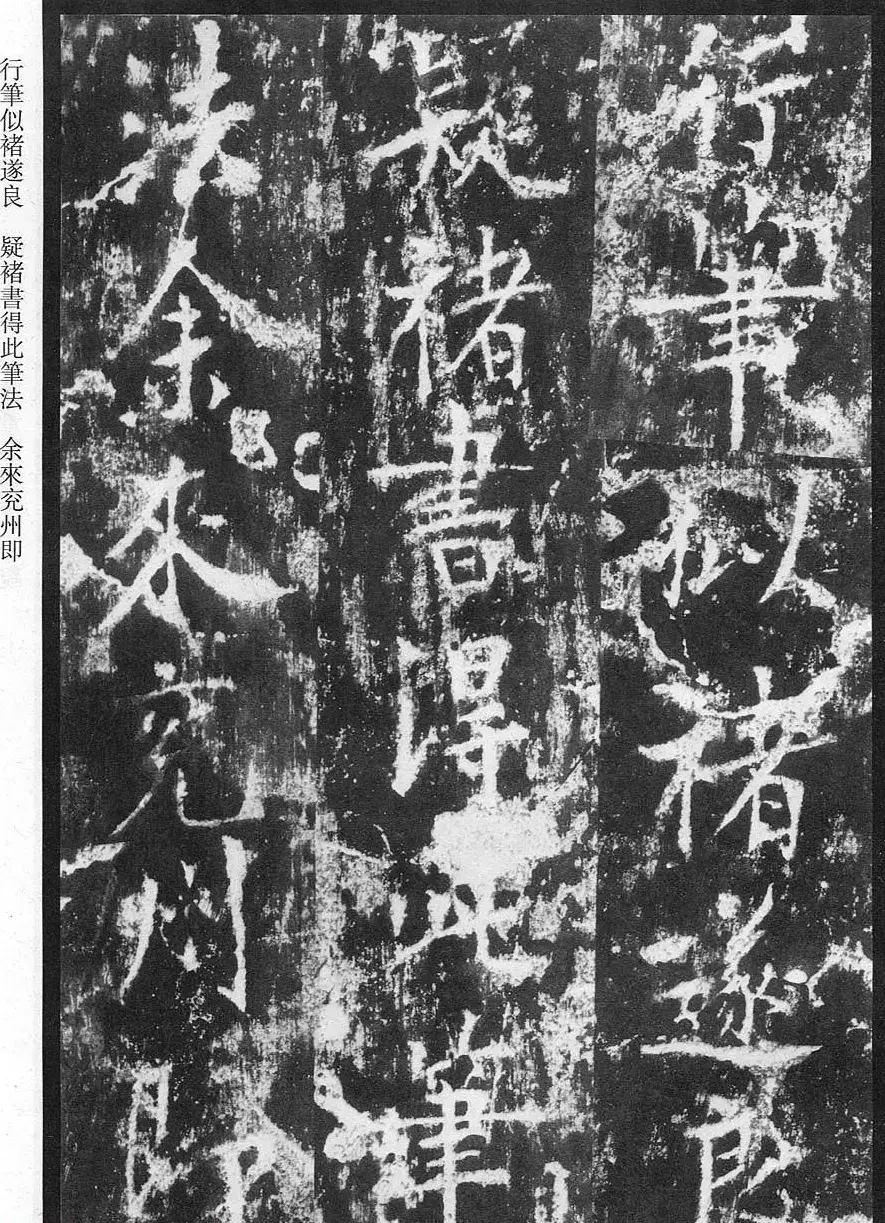 行筆似褚遂良
疑褚書得此筆
法余來兗州即
行筆似褚遂良　疑褚書得此筆法　余來兗州即